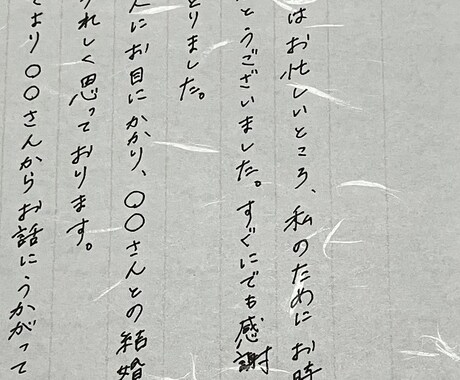 はお忙しいところ、私のためにお時
とうございました。すぐにでも感謝
とりました。
人にお目にかかり、○○さんとの結婚
うれしく思っております。
てより○○さんからお話にうかがって